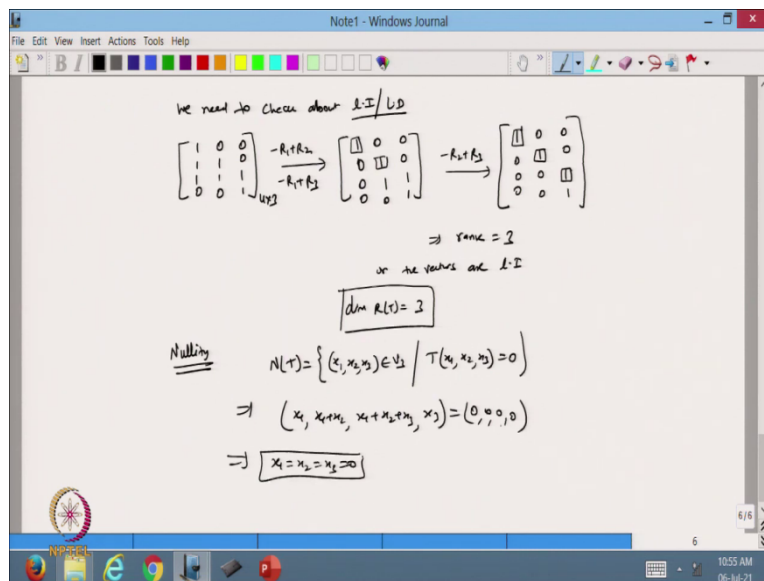 Note1 - Windows Journal
File Edit View Insert Actions Tools Help
B I
We need to check about l.I/LD
[1 0 0; 1 1 0; 1 1 1; 0 0 1]4x3 -R1+R2 -R1+R3 → [1 0 0; 0 1 0; 0 1 1; 0 0 1] -R2+R3 → [1 0 0; 0 1 0; 0 0 1; 0 0 1]
⇒ rank = 3
or the vectors are l.I
dim R(T) = 3
Nullity N(T) = {(x1, x2, x3) ∈ V3 / T(x1, x2, x3) = 0}
⇒ (x1, x1+x2, x1+x2+x3, x3) = (0, 0, 0, 0)
⇒ x1 = x2 = x3 = 0
6/6
6
NPTEL
10:55 AM
06-Jul-21